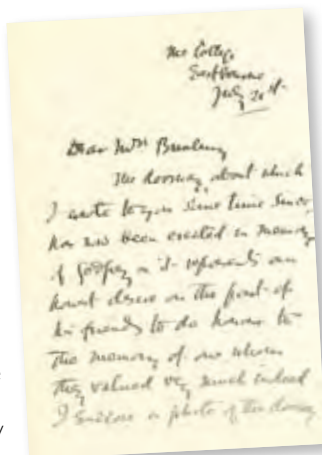 The College
Eastbourne
July 21st
Dear Mrs Bunbury
The doorway, about which
I wrote to you some time since,
has now been erected in memory
of Godfrey & it represents an
honest desire on the part of
his friends to do honour to
the memory of one whom
they valued very much indeed
I enclose a photo of the doorway
y